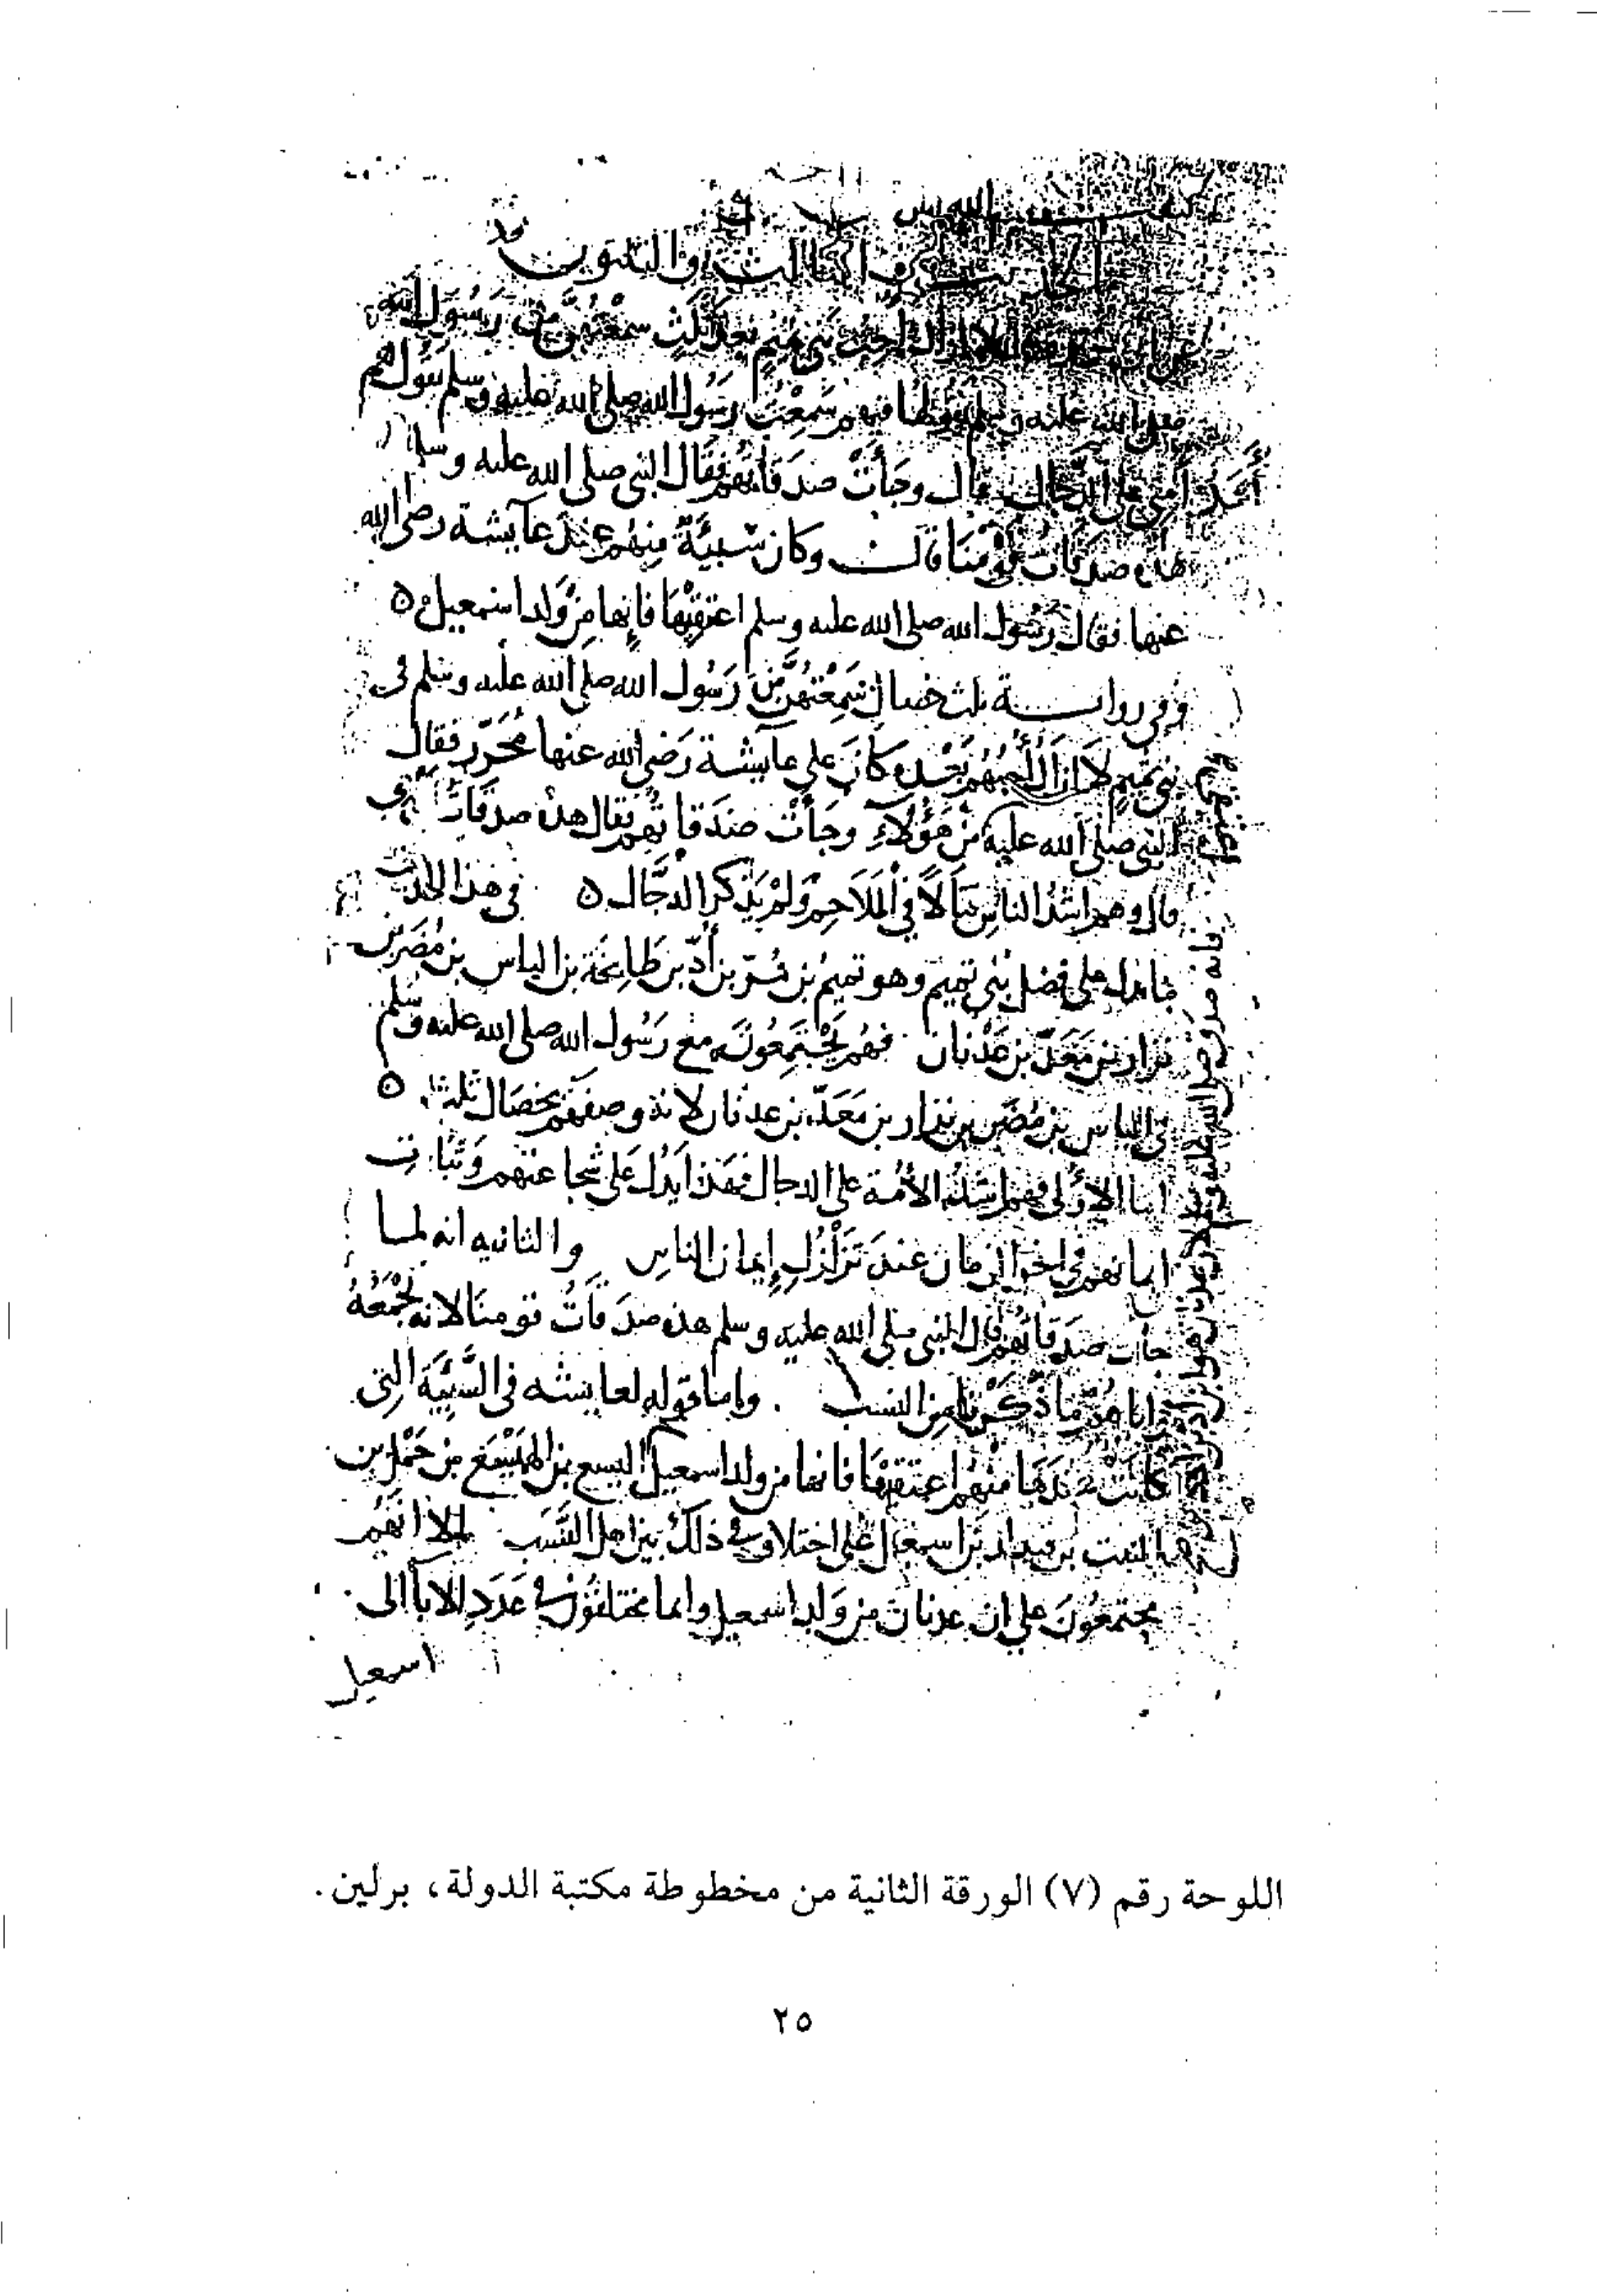 الحديث الثالث والثلثون
لا ازال احب بني تميم بعد ثلث سمعتهن من رسول الله
صلى الله عليه وسلم يقولها فيهم سَمِعْتُ رسُول الله صلى الله عليه وسلم يقول هم
أشد أمتي على الدجال قال وجَأتْ صَدَقاتهم فقال النبي صلى الله عليه وسلم
هذه صدقات قومنا قال وكان سَبِيَّةٌ مِنهُم عِندَ عآيشة رضى الله
عنها فقال رسُول الله صلى الله عليه وسلم اعتقيْهَا فإنها مِن وَلد اسمعيل ه
وفي رواية ثلث خصال سَمِعْتهنَّ مِن رَسُول الله صلى الله عليه وسلم في
بني تميم لا ازال أُحبُّهُم بَعْدُ كانَ على عايشة رَضي الله عنها مُحَرَّر فقال
النبي صلى الله عليه مِن هَؤُلآءِ وجأتْ صَدَقاتُهم فقال هذه صدقات قومي
قال وهم اشدُّ الناسِ قتالاً في الملاحِم وَلمْ يَذكر الدجَّال ه في هذا الحديث
ما يدل على فضل بني تميم وهو تميم بن مُرّ بن أُدّ بن طابخة بن الياس بن مُضَر بن
نزار بن مَعَدّ بن عَدْنان فهُم يَجْتمِعُونَ مع رَسُول الله صلى الله عليه وسلم
في الياس بن مُضَر بن نزار بن مَعَدّ بن عدنان لانه وصفهُم بخصَال ثلث ه
اما الأولى فهم اشدُّ الأمّة على الدجال فهَذا يَدُل عَلى شجاعتهم وَثبَات
ايمانهم في اخر الزمان عندَ تَزَلْزُلِ إيمان الناسِ والثانيه انه لما
جأت صَدَقاتهُم قال النبي صلى الله عليه وسلم هذه صدَقاتُ قومنا لانه يَجْمَعُهُ
اياهُم مَا ذكَرْنا مِن النسب . واما قوله لعايشه في السَّبِيَّةِ التي
كانَتْ عندَهَا منهُم اعتقيْهَا فانها من ولد اسمعيل اليسع بن الهَمَيْسَع بن حَمْل بن
النبت بن قيدار بن اسمعيل على اختلاف في ذلك بين اهل النَّسَب الا انهُم
مجتمعُونَ على ان عدنان من وَلد اسمعيل وانما يختلفُون في عَدَدِ الابآ الى
اسمعيل
اللوحة رقم (٧) الورقة الثانية من مخطوطة مكتبة الدولة، برلين.
٢٥